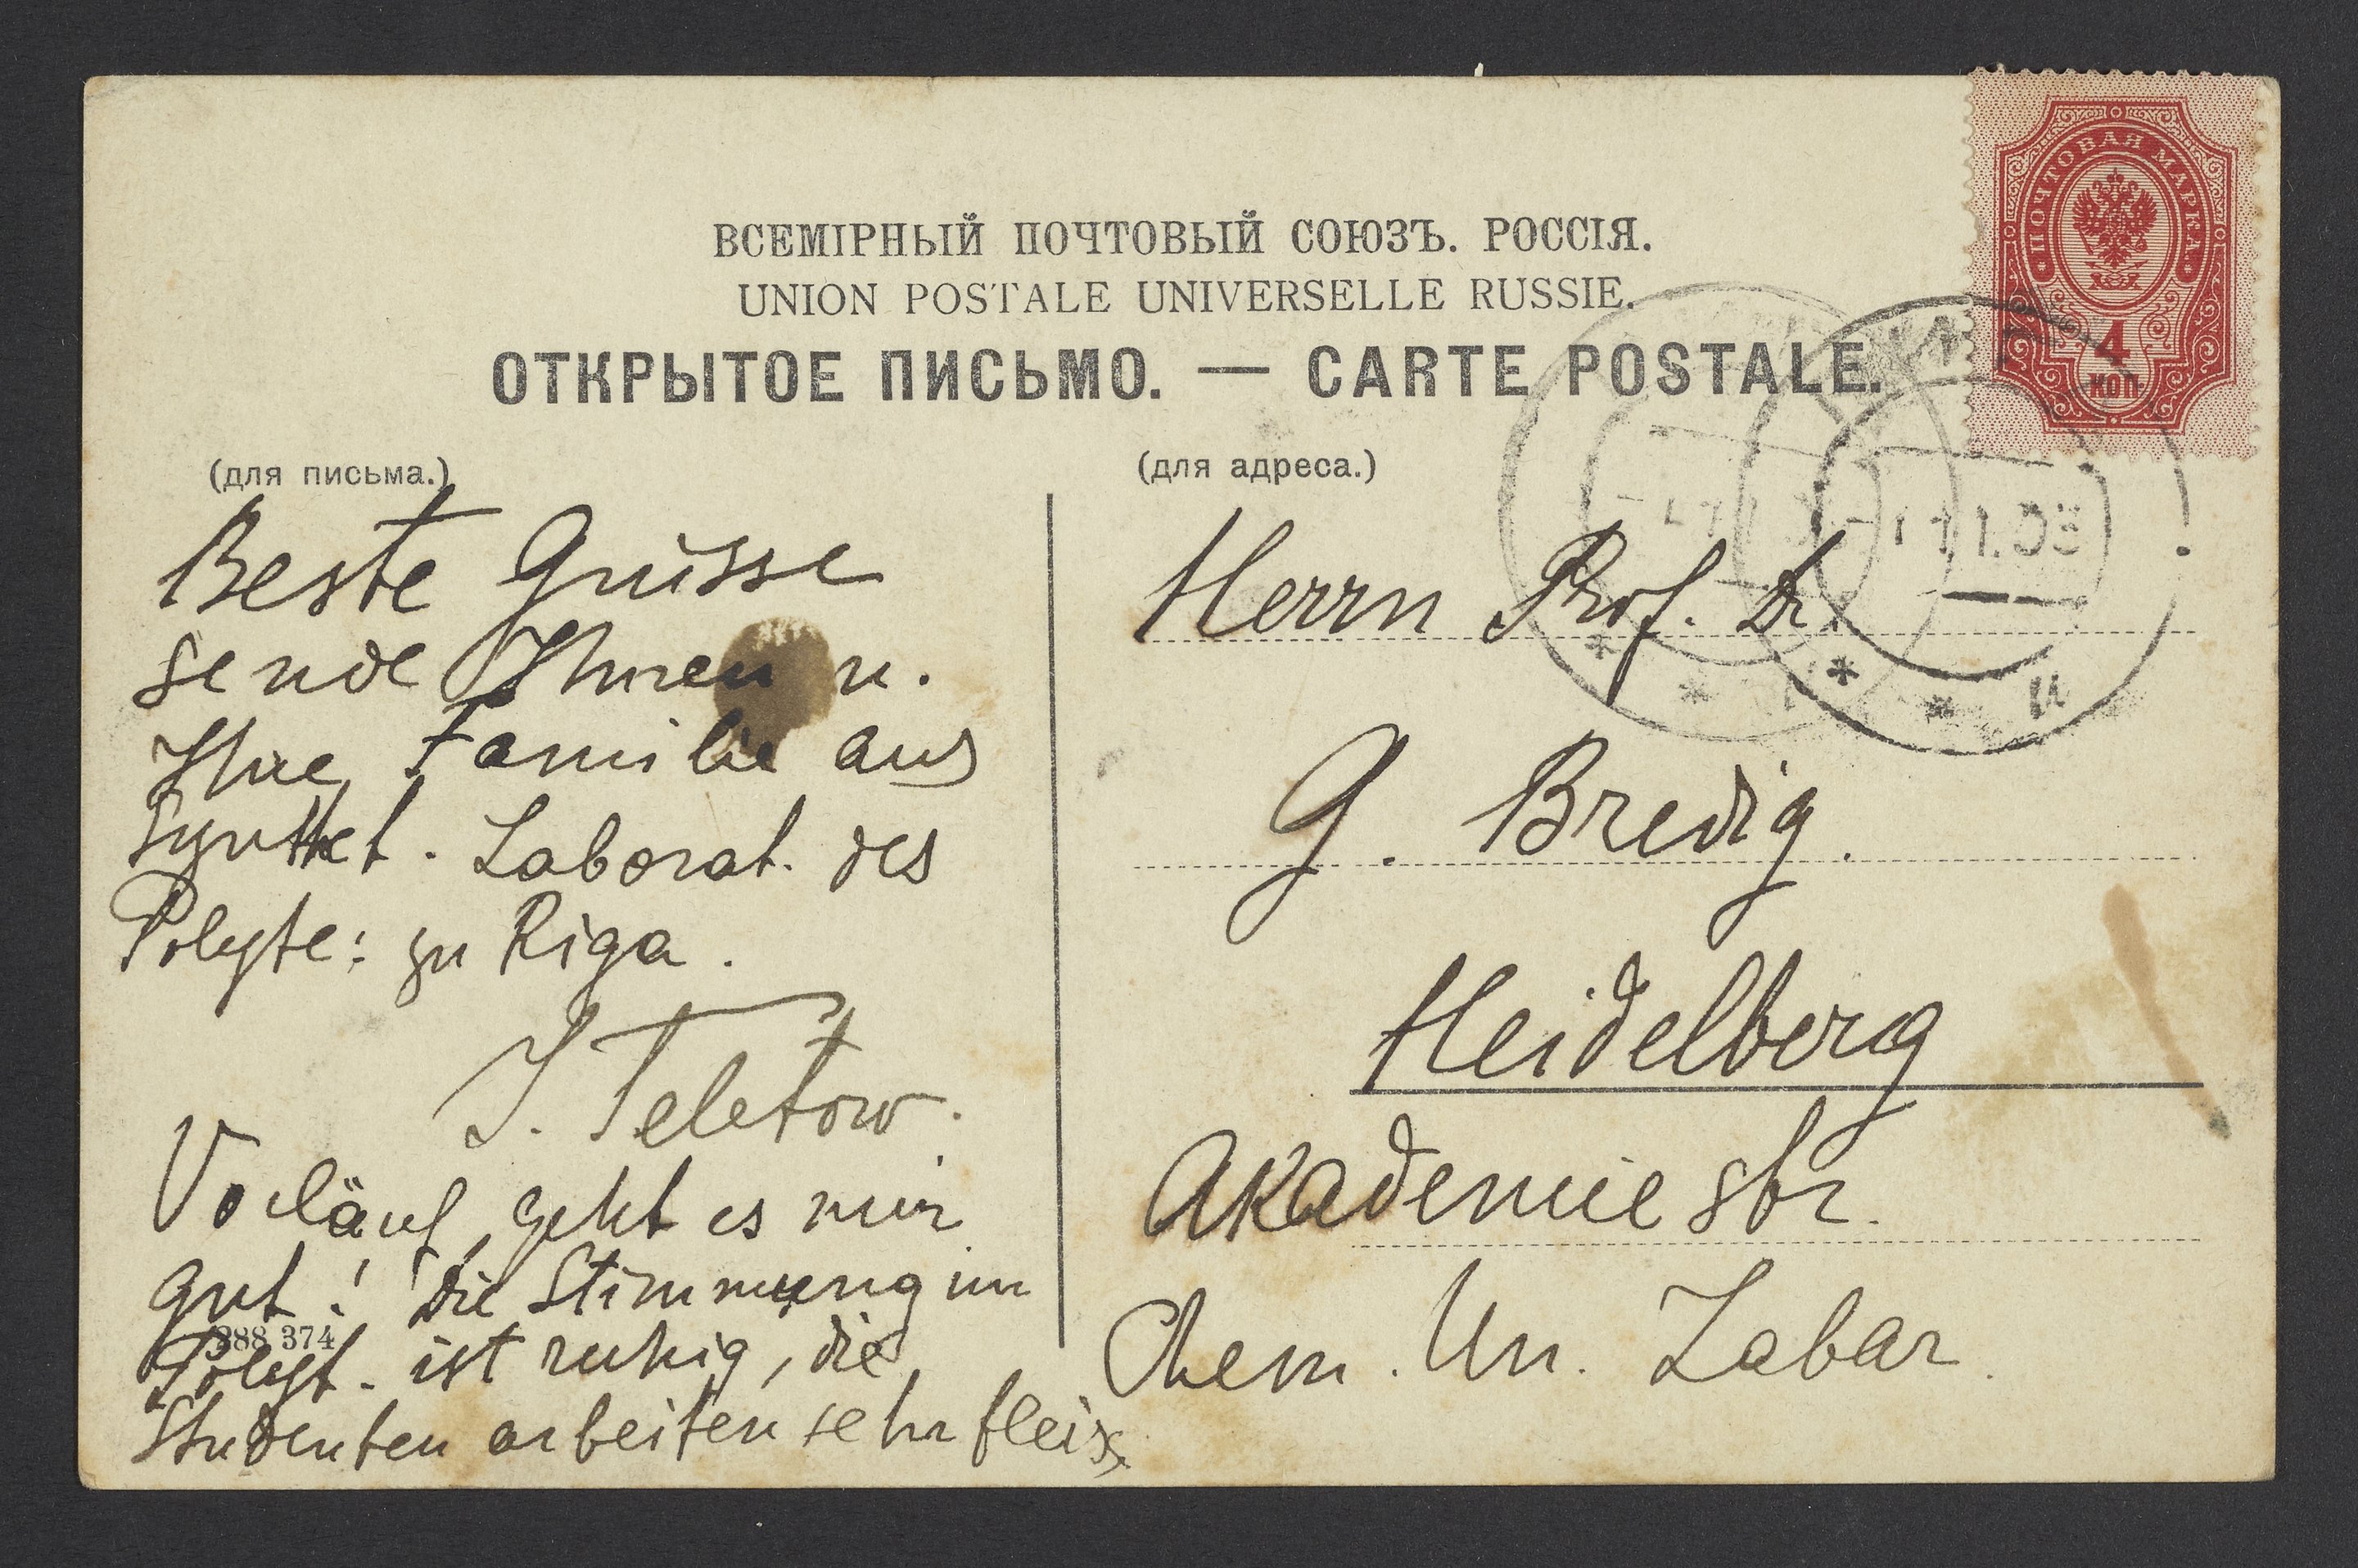 ВСЕМІРНЫЙ ПОЧТОВЫЙ СОЮЗЪ. РОССІЯ.
UNION POSTALE UNIVERSELLE RUSSIE.
ОТКРЫТОЕ ПИСЬМО. — CARTE POSTALE.
ПОЧТОВАЯ МАРКА
4
КОП.
(для письма.)
Beste Grüsse
sende Ihnen u.
Ihre Familie aus
Synthet. Laborat. des
Polyte: zu Riga.
J. Teletow.
Vorläuf geht es mir
gut! Die Stimmung im
Polyt. ist ruhig, die
Studenten arbeiten sehr fleis
388 374
(для адреса.)
Herrn Prof. Dr.
G. Bredig.
Heidelberg
Akademie str.
Chem. Un. Labar.